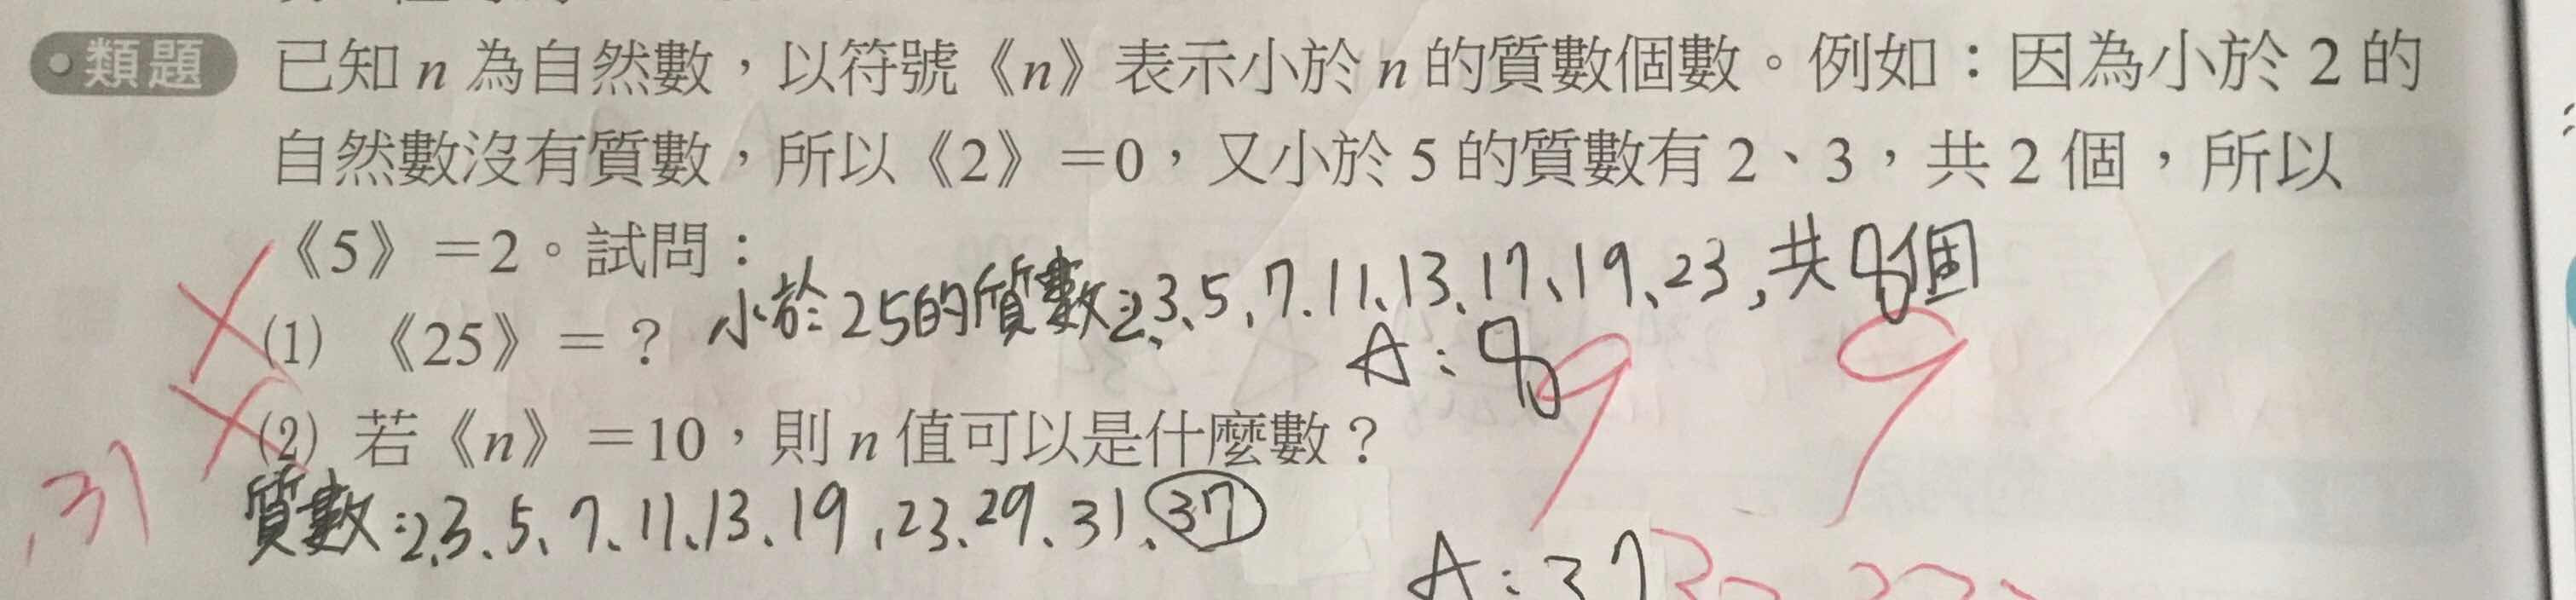 類題 已知 n 為自然數，以符號《n》表示小於 n 的質數個數。例如：因為小於 2 的
自然數沒有質數，所以《2》＝0，又小於 5 的質數有 2、3，共 2 個，所以
《5》＝2。試問：
小於25的質數:2、3、5、7、11、13、17、19、23,共8個
(1) 《25》＝？
A:8
9
9
(2) 若《n》＝10，則 n 值可以是什麼數？
,31
質數:2、3、5、7、11、13、19、23、29、31、37
A:37